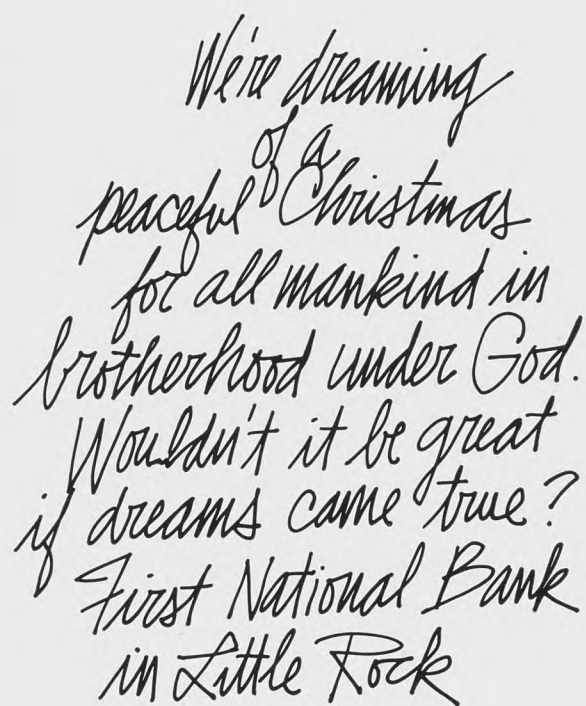 We're dreaming
of a
peaceful Christmas
for all mankind in
brotherhood under God.
Wouldn't it be great
if dreams came true?
First National Bank
in Little Rock